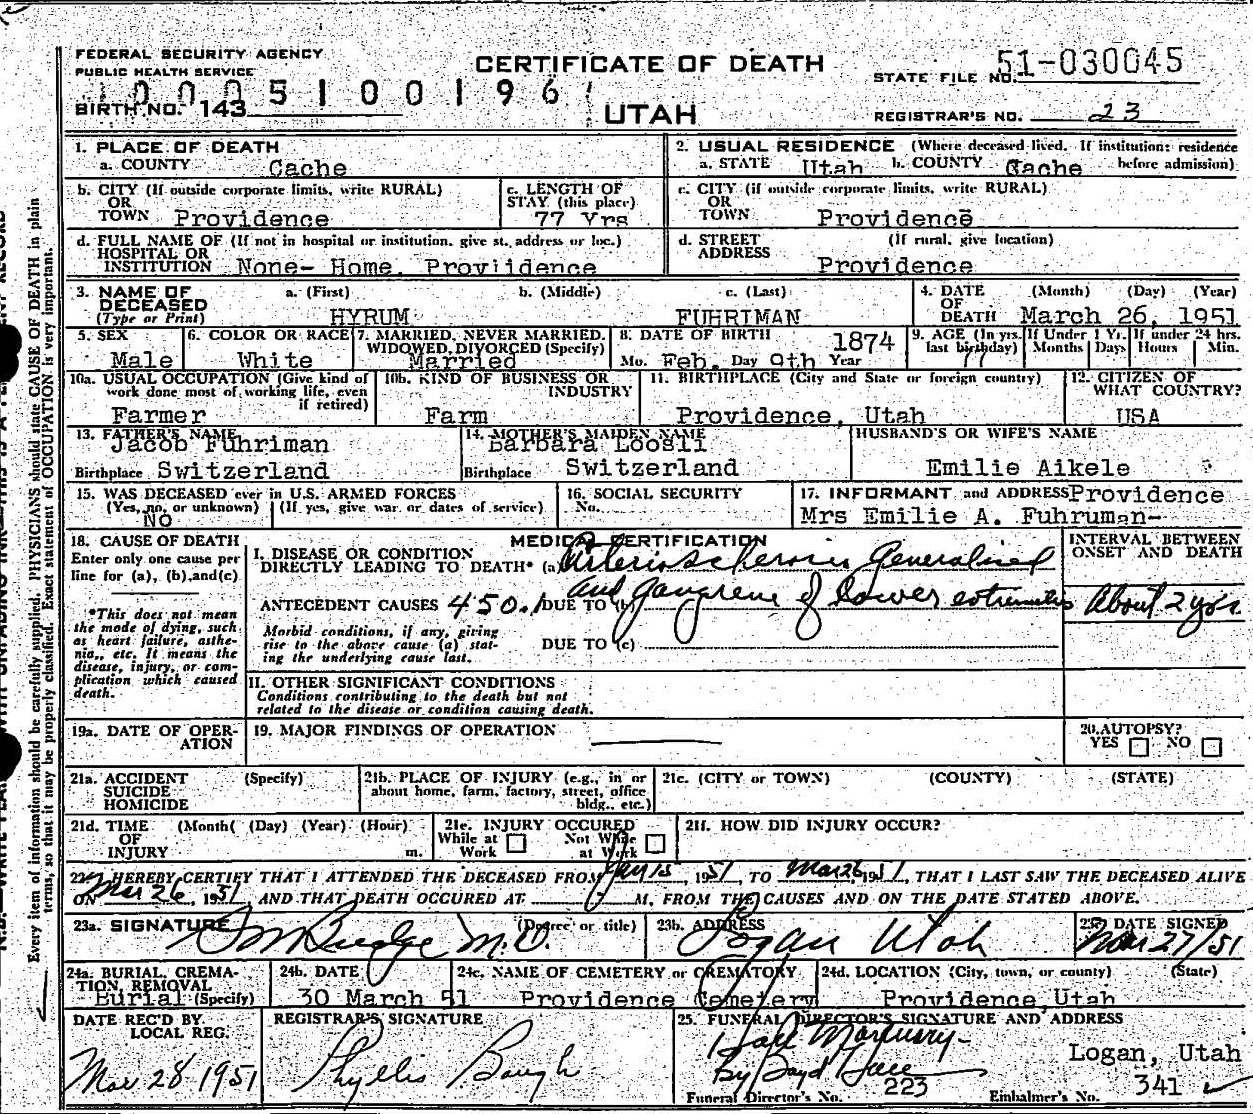 FEDERAL SECURITY AGENCY
PUBLIC HEALTH SERVICE
CERTIFICATE OF DEATH
STATE FILE NO. 51-030045
1000510019 6
BIRTH NO. 143
UTAH
REGISTRAR'S NO. 23
1. PLACE OF DEATH
a. COUNTY Cache
2. USUAL RESIDENCE (Where deceased lived. If institution: residence before admission)
a. STATE Utah b. COUNTY Cache
b. CITY (If outside corporate limits, write RURAL) OR TOWN Providence
c. LENGTH OF STAY (this place) 77 Yrs
c. CITY (if outside corporate limits, write RURAL) OR TOWN Providence
d. FULL NAME OF (If not in hospital or institution, give st. address or loc.) HOSPITAL OR INSTITUTION None- Home, Proviidence
d. STREET ADDRESS (If rural, give location) Providence
3. NAME OF DECEASED (Type or Print)
a. (First) HYRUM
b. (Middle)
c. (Last) FUHRIMAN
4. DATE OF DEATH (Month) (Day) (Year) March 26, 1951
5. SEX Male
6. COLOR OR RACE White
7. MARRIED, NEVER MARRIED, WIDOWED, DIVORCED (Specify) Married
8. DATE OF BIRTH Mo. Feb. Day 9th Year 1874
9. AGE (In yrs. last birthday) 77
If Under 1 Yr. Months Days
If under 24 hrs. Hours Min.
10a. USUAL OCCUPATION (Give kind of work done most of working life, even if retired) Farmer
10b. KIND OF BUSINESS OR INDUSTRY Farm
11. BIRTHPLACE (City and State or foreign country) Providence, Utah
12. CITIZEN OF WHAT COUNTRY? USA
13. FATHER'S NAME Jacob Fuhriman
Birthplace Switzerland
14. MOTHER'S MAIDEN NAME Barbara Loosli
Birthplace Switzerland
HUSBAND'S OR WIFE'S NAME Emilie Aikele
15. WAS DECEASED ever in U.S. ARMED FORCES
(Yes, no, or unknown) (If yes, give war or dates of service)
NO
16. SOCIAL SECURITY No.
17. INFORMANT and ADDRESS Providence
Mrs Emilie A. Fuhruman-
18. CAUSE OF DEATH
Enter only one cause per line for (a), (b), and (c)
*This does not mean the mode of dying, such as heart failure, asthenia, etc. It means the disease, injury, or complication which caused death.
MEDICAL CERTIFICATION
I. DISEASE OR CONDITION DIRECTLY LEADING TO DEATH* (a) Arteriosclerosis Generalized
and gangrene of lower extremities
ANTECEDENT CAUSES 450.1 DUE TO (b)
Morbid conditions, if any, giving rise to the above cause (a) stating the underlying cause last.
DUE TO (c)
INTERVAL BETWEEN ONSET AND DEATH
About 2 yrs.
II. OTHER SIGNIFICANT CONDITIONS
Conditions contributing to the death but not related to the disease or condition causing death.
19a. DATE OF OPERATION
19. MAJOR FINDINGS OF OPERATION
20. AUTOPSY? YES NO
21a. ACCIDENT SUICIDE HOMICIDE (Specify)
21b. PLACE OF INJURY (e.g., in or about home, farm, factory, street, office bldg., etc.)
21c. (CITY or TOWN) (COUNTY) (STATE)
21d. TIME OF INJURY (Month( (Day) (Year) (Hour) m.
21e. INJURY OCCURED While at Work Not While at Work
21f. HOW DID INJURY OCCUR?
22. I HEREBY CERTIFY THAT I ATTENDED THE DECEASED FROM Jan 15, 1951, TO Mar 26, 1951, THAT I LAST SAW THE DECEASED ALIVE
ON Mar 26, 1951 AND THAT DEATH OCCURED AT M., FROM THE CAUSES AND ON THE DATE STATED ABOVE.
23a. SIGNATURE (Degree or title) Budge M.D.
23b. ADDRESS Logan Utah
23c. DATE SIGNED Mar 27/51
24a. BURIAL, CREMATION, REMOVAL (Specify) Burial
24b. DATE 30 March 51
24c. NAME OF CEMETERY or CREMATORY Providence Cemetery
24d. LOCATION (City, town, or county) (State) Providence, Utah
DATE REC'D BY LOCAL REG. Mar 28 1951
REGISTRAR'S SIGNATURE Phyllis Baugh
25. FUNERAL DIRECTOR'S SIGNATURE AND ADDRESS
Hall Mortuary-
By Boyd Hall
Logan, Utah
Funeral Director's No. 223
Embalmer's No. 341
Every item of information should be carefully supplied. PHYSICIANS should state CAUSE OF DEATH in plain
terms, so that it may be properly classified. Exact statement of OCCUPATION is very important.